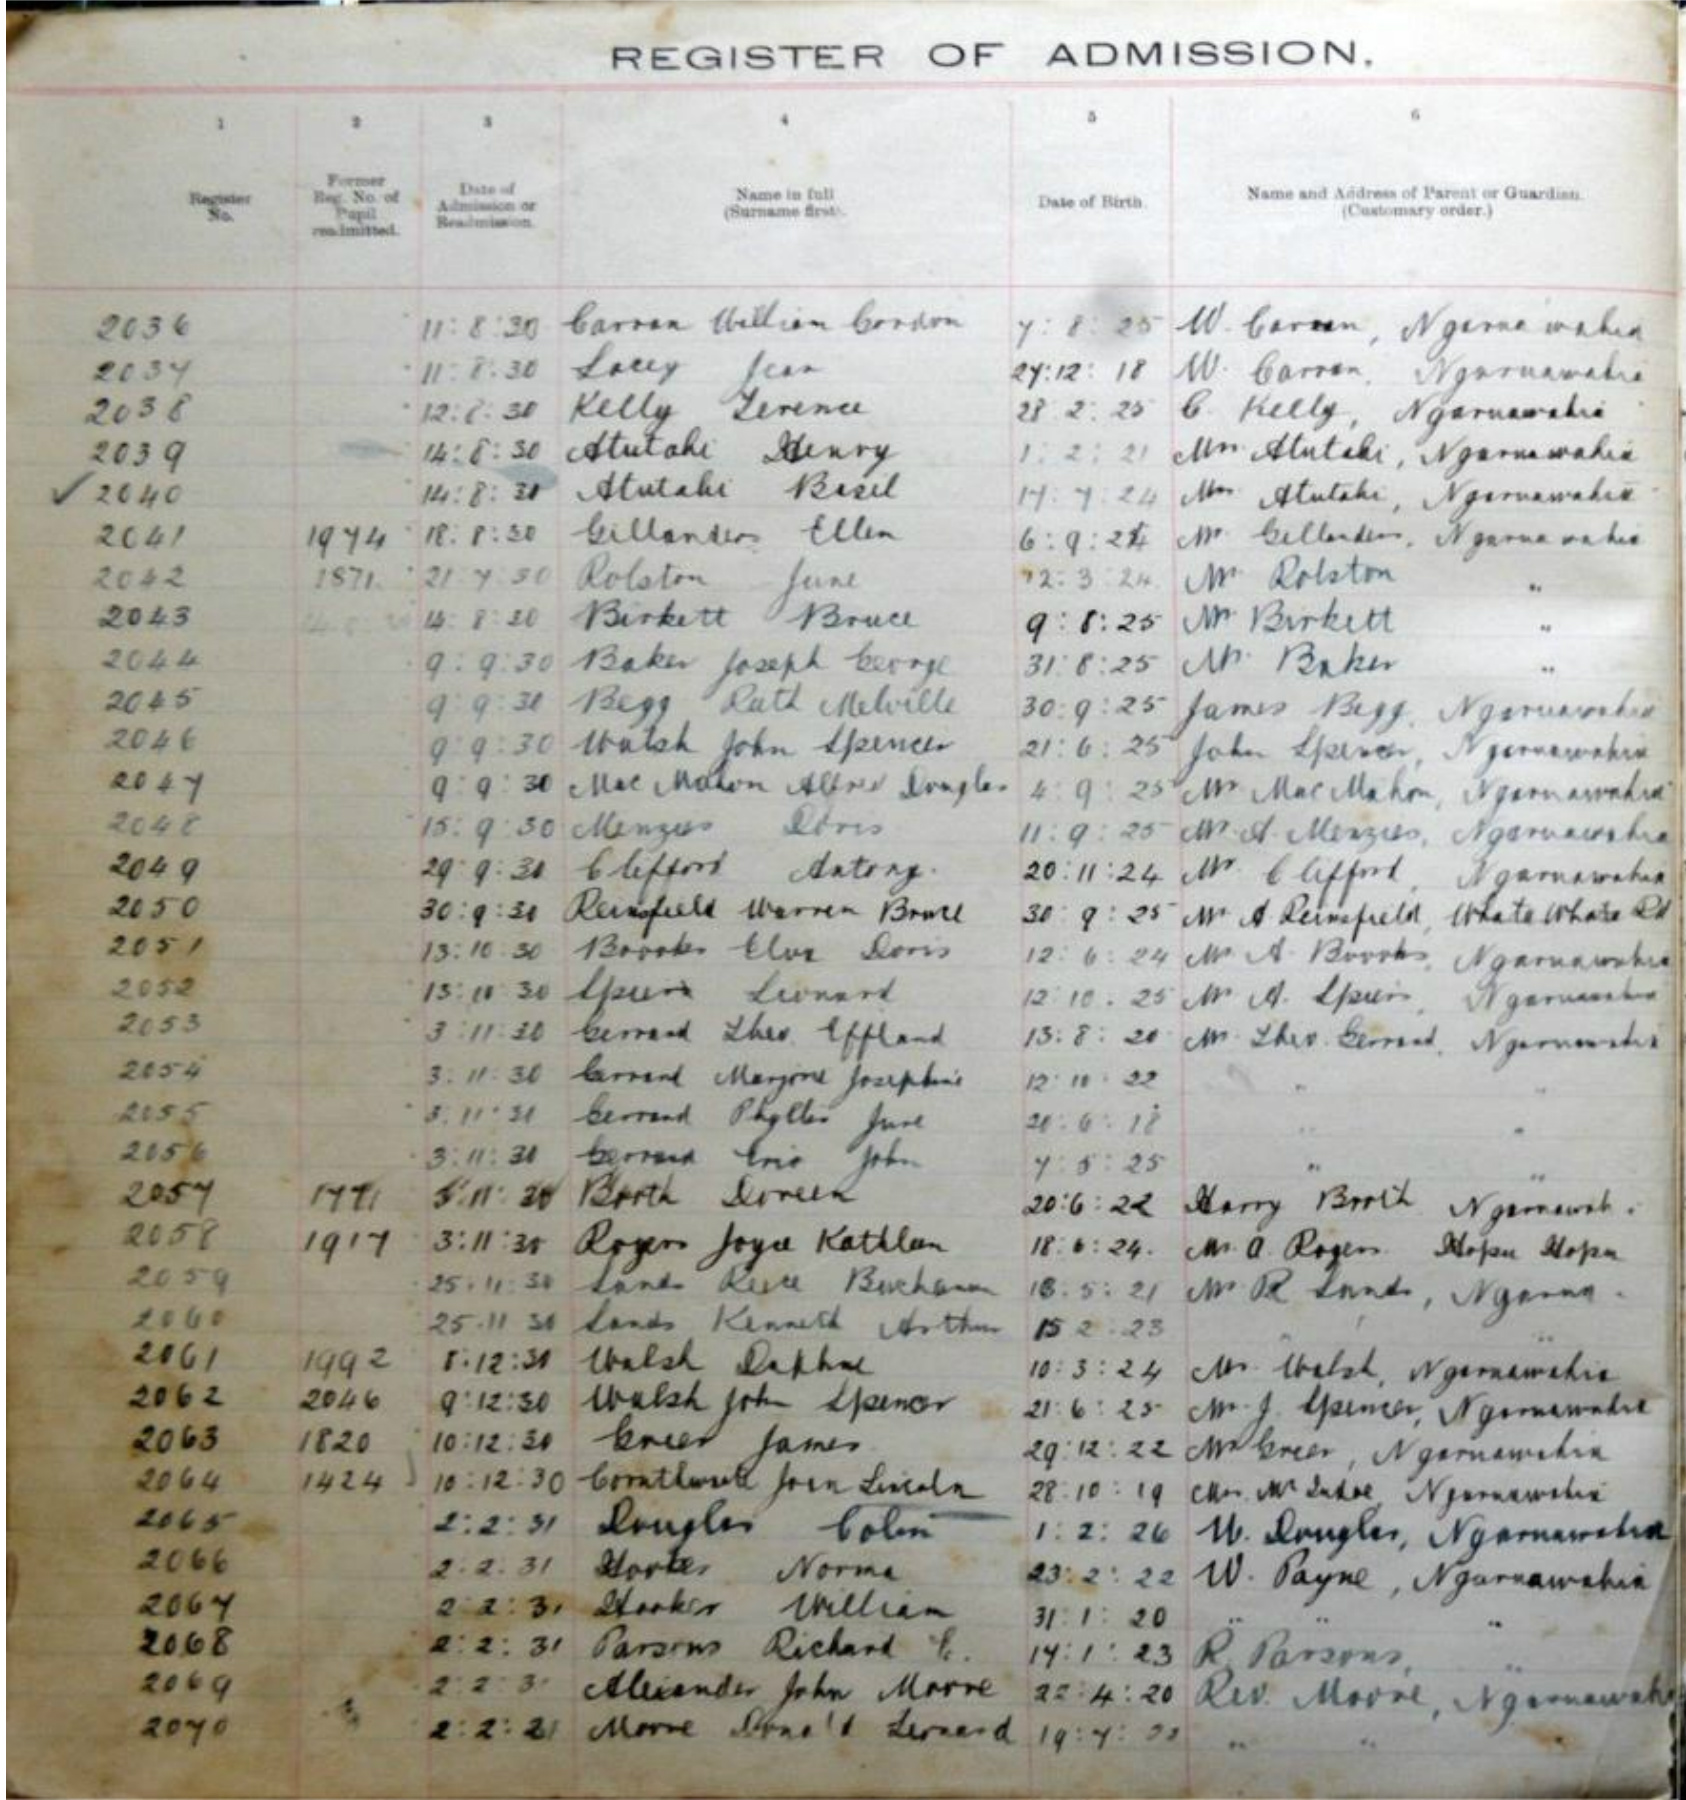 REGISTER OF ADMISSION.
1 2 3 4 5 6
Register No. Former Reg. No. of Pupil readmitted. Date of Admission or Readmission. Name in full (Surname first). Date of Birth. Name and Address of Parent or Guardian. (Customary order.)
2036 11:8:30 Carran William Gordon 7:8:25 W. Carran, Ngaruawahia
2037 11:8:30 Lacey Jean 27:12:18 W. Carran, Ngaruawahia
2038 12:8:30 Kelly Terence 28 2:25 C. Kelly, Ngaruawahia
2039 14:8:30 Atutahi Henry 1:2:21 Mrs Atutahi, Ngaruawahia
✓ 2040 14:8:30 Atutahi Basil 17:7:24 Mrs Atutahi, Ngaruawahia
2041 1974 18:8:30 Gillanders Ellen 6:9:24 Mr Gillanders, Ngaruawahia
2042 1871 21:7:30 Rolston June 12:3:24 Mr Rolston "
2043 14:8:30 Birkett Bruce 9:8:25 Mr Birkett "
2044 9:9:30 Baker Joseph George 31:8:25 Mr. Baker "
2045 9:9:30 Begg Ruth Melville 30:9:25 James Begg, Ngaruawahia
2046 9:9:30 Walsh John Spencer 21:6:25 John Spencer, Ngaruawahia
2047 9:9:30 Mac Mahon Alfred Douglas 4:9:25 Mr Mac Mahon, Ngaruawahia
2048 15:9:30 Menzies Doris 11:9:25 Mr A. Menzies, Ngaruawahia
2049 29:9:30 Clifford Antony. 20:11:24 Mr. Clifford, Ngaruawahia
2050 30:9:30 Reinsfield Warren Bruce 30:9:25 Mr A Reinsfield, Whata Whata Rd
2051 13:10:30 Brooks Elva Doris 12:6:24 Mr A. Brooks, Ngaruawahia
2052 13:10:30 Spiers Leonard 12:10:25 Mr A. Spiers, Ngaruawahia
2053 3:11:30 Gerrand Theo. Effland 13:8:20 Mr. Theo. Gerrand, Ngaruawahia
2054 3:11:30 Gerrand Marjorie Josephine 12:10:22 " "
2055 3:11:30 Gerrand Phyllis June 20:6:18 " "
2056 3:11:30 Gerrand Eric John 7:5:25 " "
2057 1771 3:11:30 Booth Doreen 20:6:22 Harry Booth Ngaruawah.
2058 1917 3:11:30 Rogers Joyce Kathleen 18:6:24. Mr. A. Rogers. Hopu Hopu
2059 25:11:30 Sands Buchanan 18:5:21 Mr R Sands, Ngarua.
2060 25.11 30 Sands Kenneth Arthur 15 2.23 " "
2061 1992 8:12:30 Walsh Daphne 10:3:24 Mr. Walsh, Ngaruawahia
2062 2046 9:12:30 Walsh John Spencer 21:6:25 Mr J. Spencer, Ngaruawahia
2063 1820 10:12:30 Greer James 29:12:22 Mr Greer, Ngaruawahia
2064 1424 10:12:30 Lincoln 28:10:19 Ngaruawahia
2065 2:2:31 Douglas Colin 1:2:26 W. Douglas, Ngaruawahia
2066 2:2:31 Hooker Norma 23:2:22 W. Payne, Ngaruawahia
2067 2:2:31 Hooker William 31:1:20 " " "
2068 2:2:31 Parsons Richard 17:1:23 R. Parsons, "
2069 2:2:31 Alexander John Moore 22:4:20 Rev. Moore, Ngaruawahia
2070 2:2:31 Moore Donald Leonard 19:7: " "